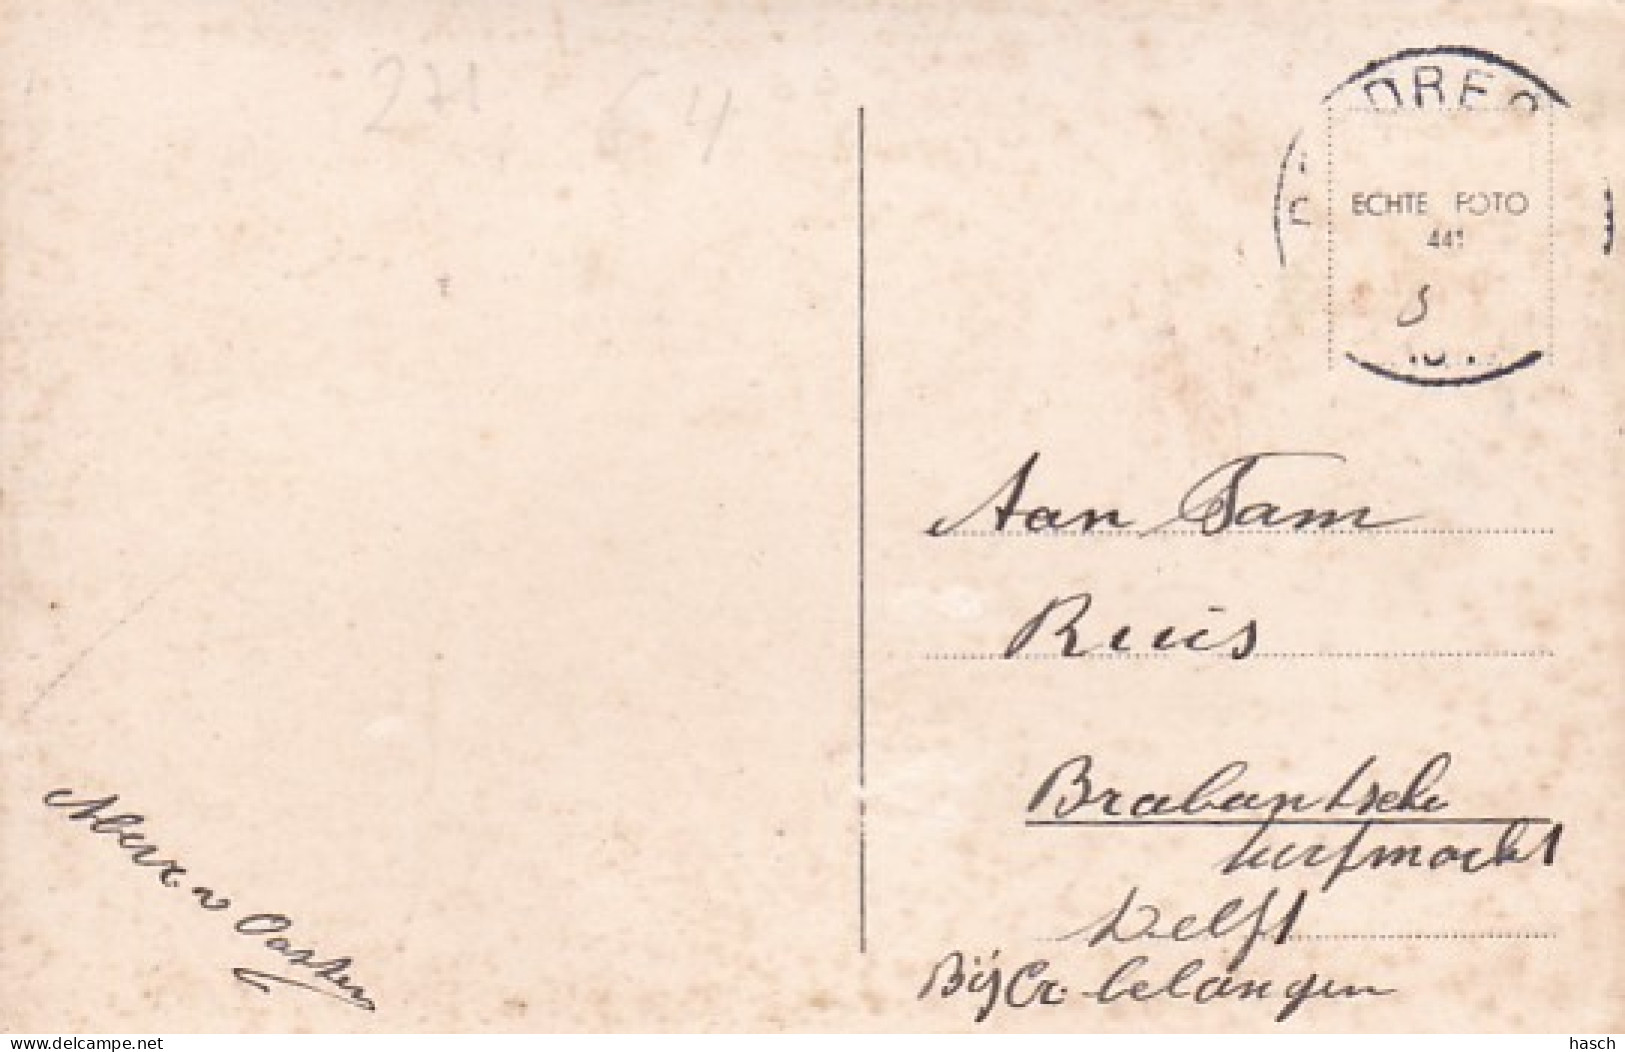 271
4
DRES
ECHTE FOTO
441
Aan Fam
Ruis
Brabantsche
turfmarkt
Delft
Bij Cr. belangen
v Oosten
delcampe.net
hasch